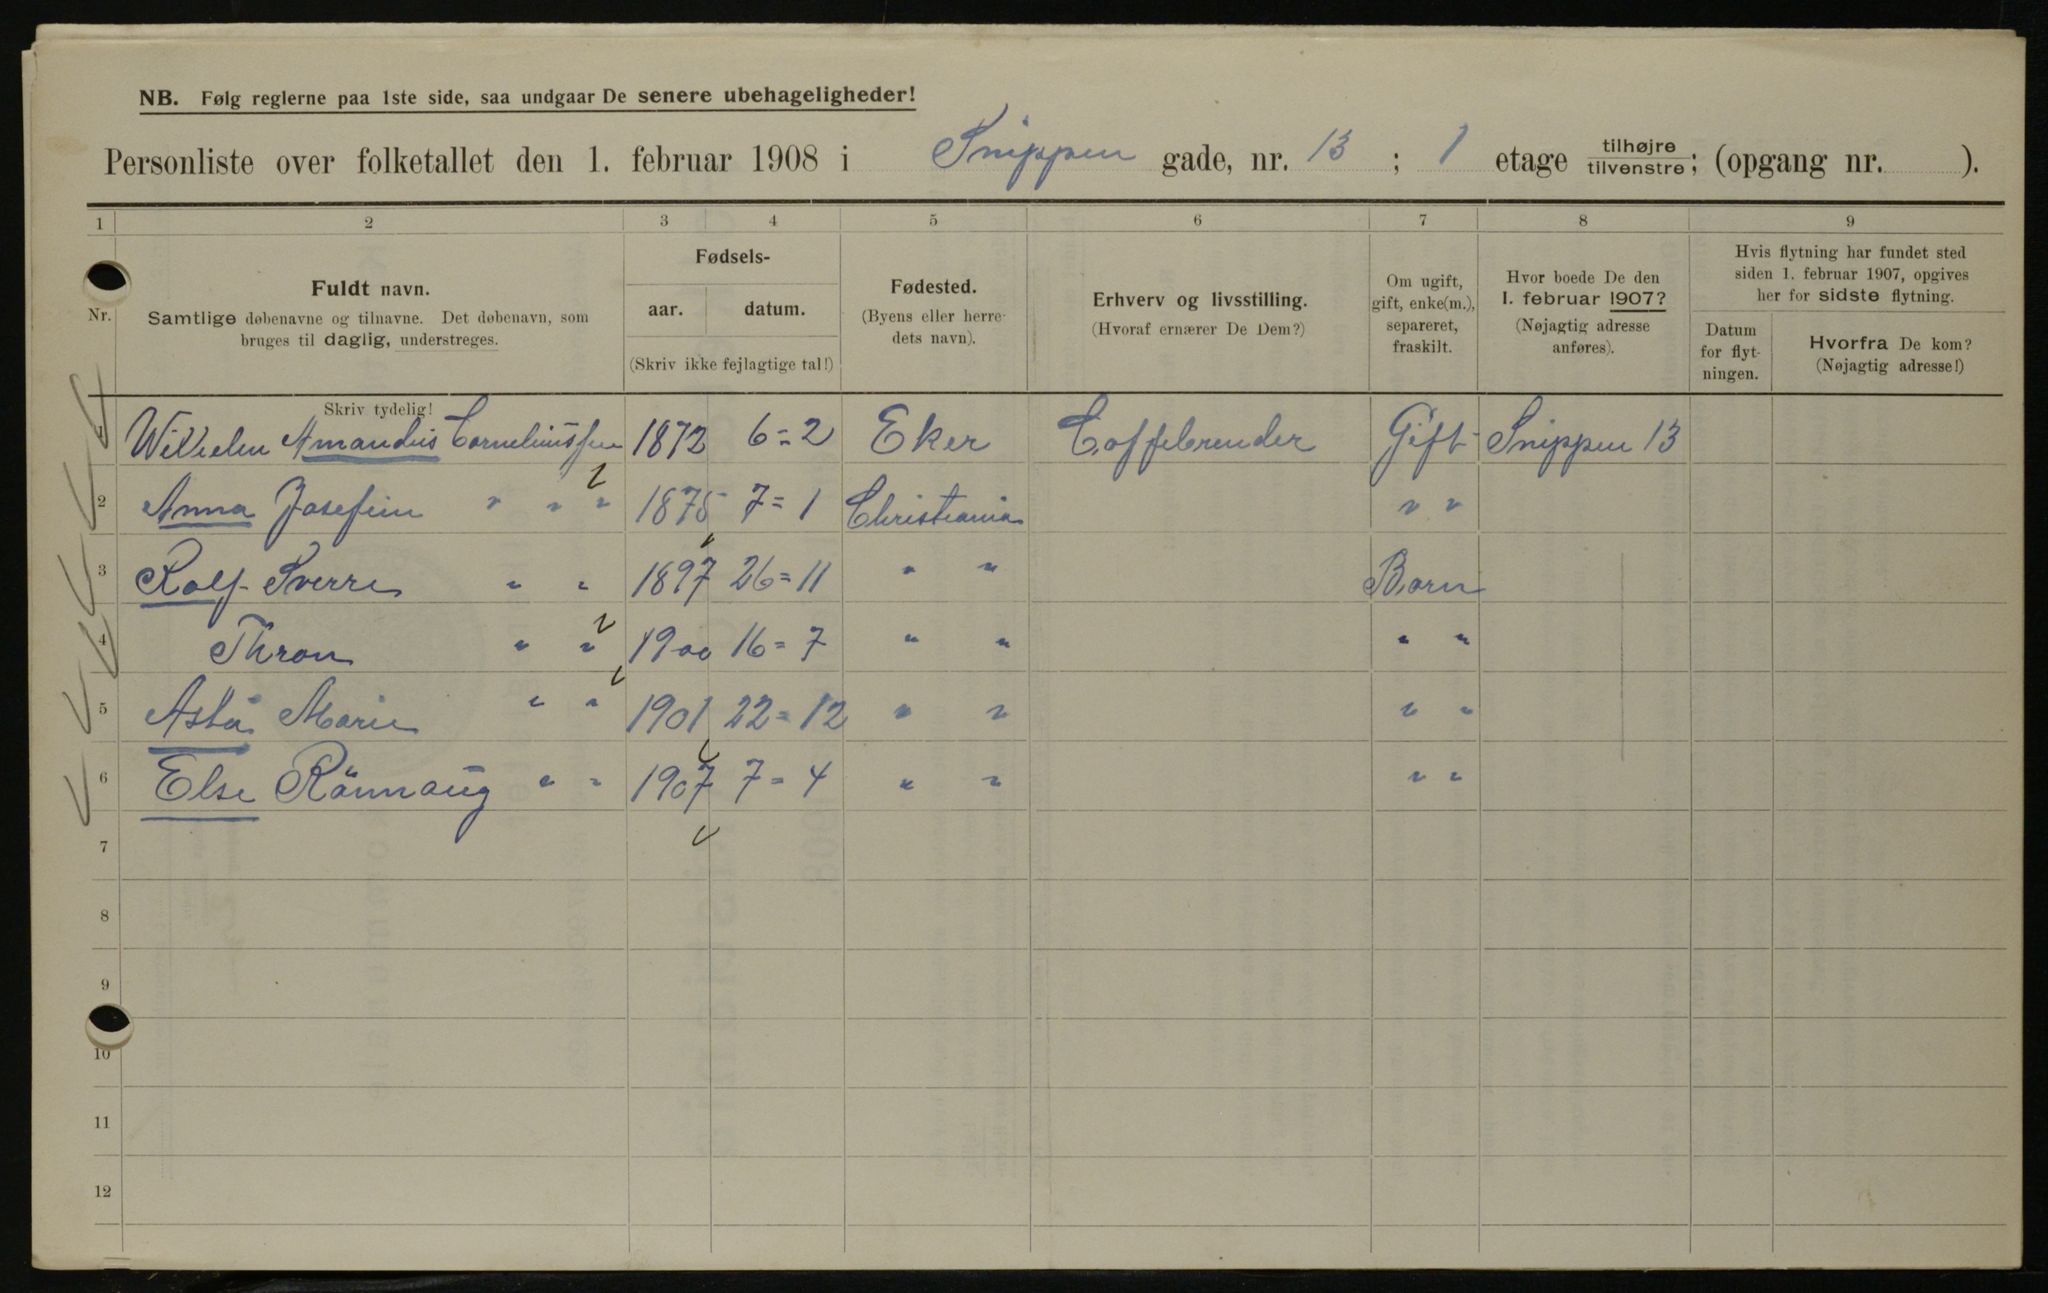 NB. Følg reglerne paa 1ste side, saa undgaar De senere ubehageligheder!
Personliste over folketallet den 1. februar 1908 i Snippen gade, nr. 13 ; 1 etage tilhøjre/tilvenstre; (opgang nr. ).
1 2 3 4 5 6 7 8 9
Nr.
Fuldt navn.
Samtlige døbenavne og tilnavne. Det døbenavn, som
bruges til daglig, understreges.
Skriv tydelig!
Fødsels-
aar. datum.
(Skriv ikke fejlagtige tal!)
Fødested.
(Byens eller herre-
dets navn).
Erhverv og livsstilling.
(Hvoraf ernærer De Dem?)
Om ugift,
gift, enke(m.),
separeret,
fraskilt.
Hvor boede De den
1. februar 1907?
(Nøjagtig adresse
anføres).
Hvis flytning har fundet sted
siden 1. februar 1907, opgives
her for sidste flytning.
Datum
for flyt-
ningen.
Hvorfra De kom?
(Nøjagtig adresse!)
1 Wilhelm Amandus Corneliussen 1872 6=2 Eker Coffebrender Gift Snippen 13
2 Anna Josefin " " " 1875 7=1 Christiania " "
3 Rolf Sverre " " 1897 26=11 " " Barn
4 Thron " " 1900 16=7 " " " "
5 Asta Marie " " 1901 22=12 " " " "
6 Else Rönnaug " " 1907 7=4 " " " "
7
8
9
10
11
12